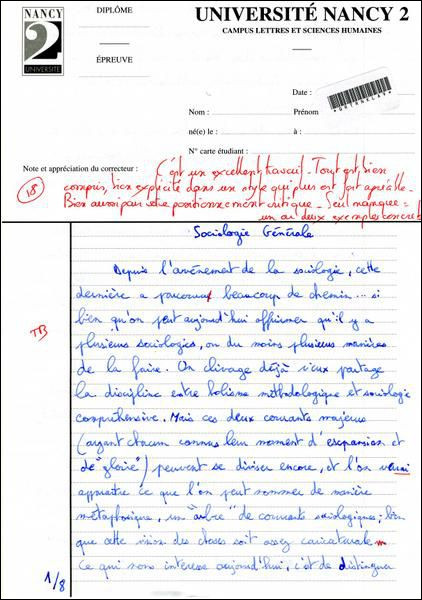 NANCY
2
UNIVERSITÉ
DIPLÔME
ÉPREUVE
UNIVERSITÉ NANCY 2
CAMPUS LETTRES ET SCIENCES HUMAINES
Date :
Nom :
Prénom
né(e) le :
à :
N° carte étudiant :
Note et appréciation du correcteur :
18
C'est un excellent travail - Tout est bien
compris, bien explicité dans un style qui plus est fort agréable -
Bien aussi pour votre positionnement critique - Seul manque =
un ou deux exemples concrets
Sociologie Générale
Depuis l'avénement de la sociologie, cette
dernière a parcouru beaucoup de chemin... si
bien qu'on peut aujourd'hui affirmer qu'il y a
TB
plusieurs sociologies, ou du moins plusieurs manières
de la faire. Un clivage déjà vieux partage
la discipline entre holisme méthodologique et sociologie
compréhensive. Mais ces deux courants majeurs
(ayant chacun connus leur moment d'expansion et
de "gloire") peuvent se diviser encore, et l'on verrai
apparaître ce que l'on peut nommer de manière
métaphorique, un "arbre" de courants sociologiques; bien
que cette vision des choses soit assez caricaturale.
Ce qui nous intéresse aujourd'hui, c'est de distinguer
1/8